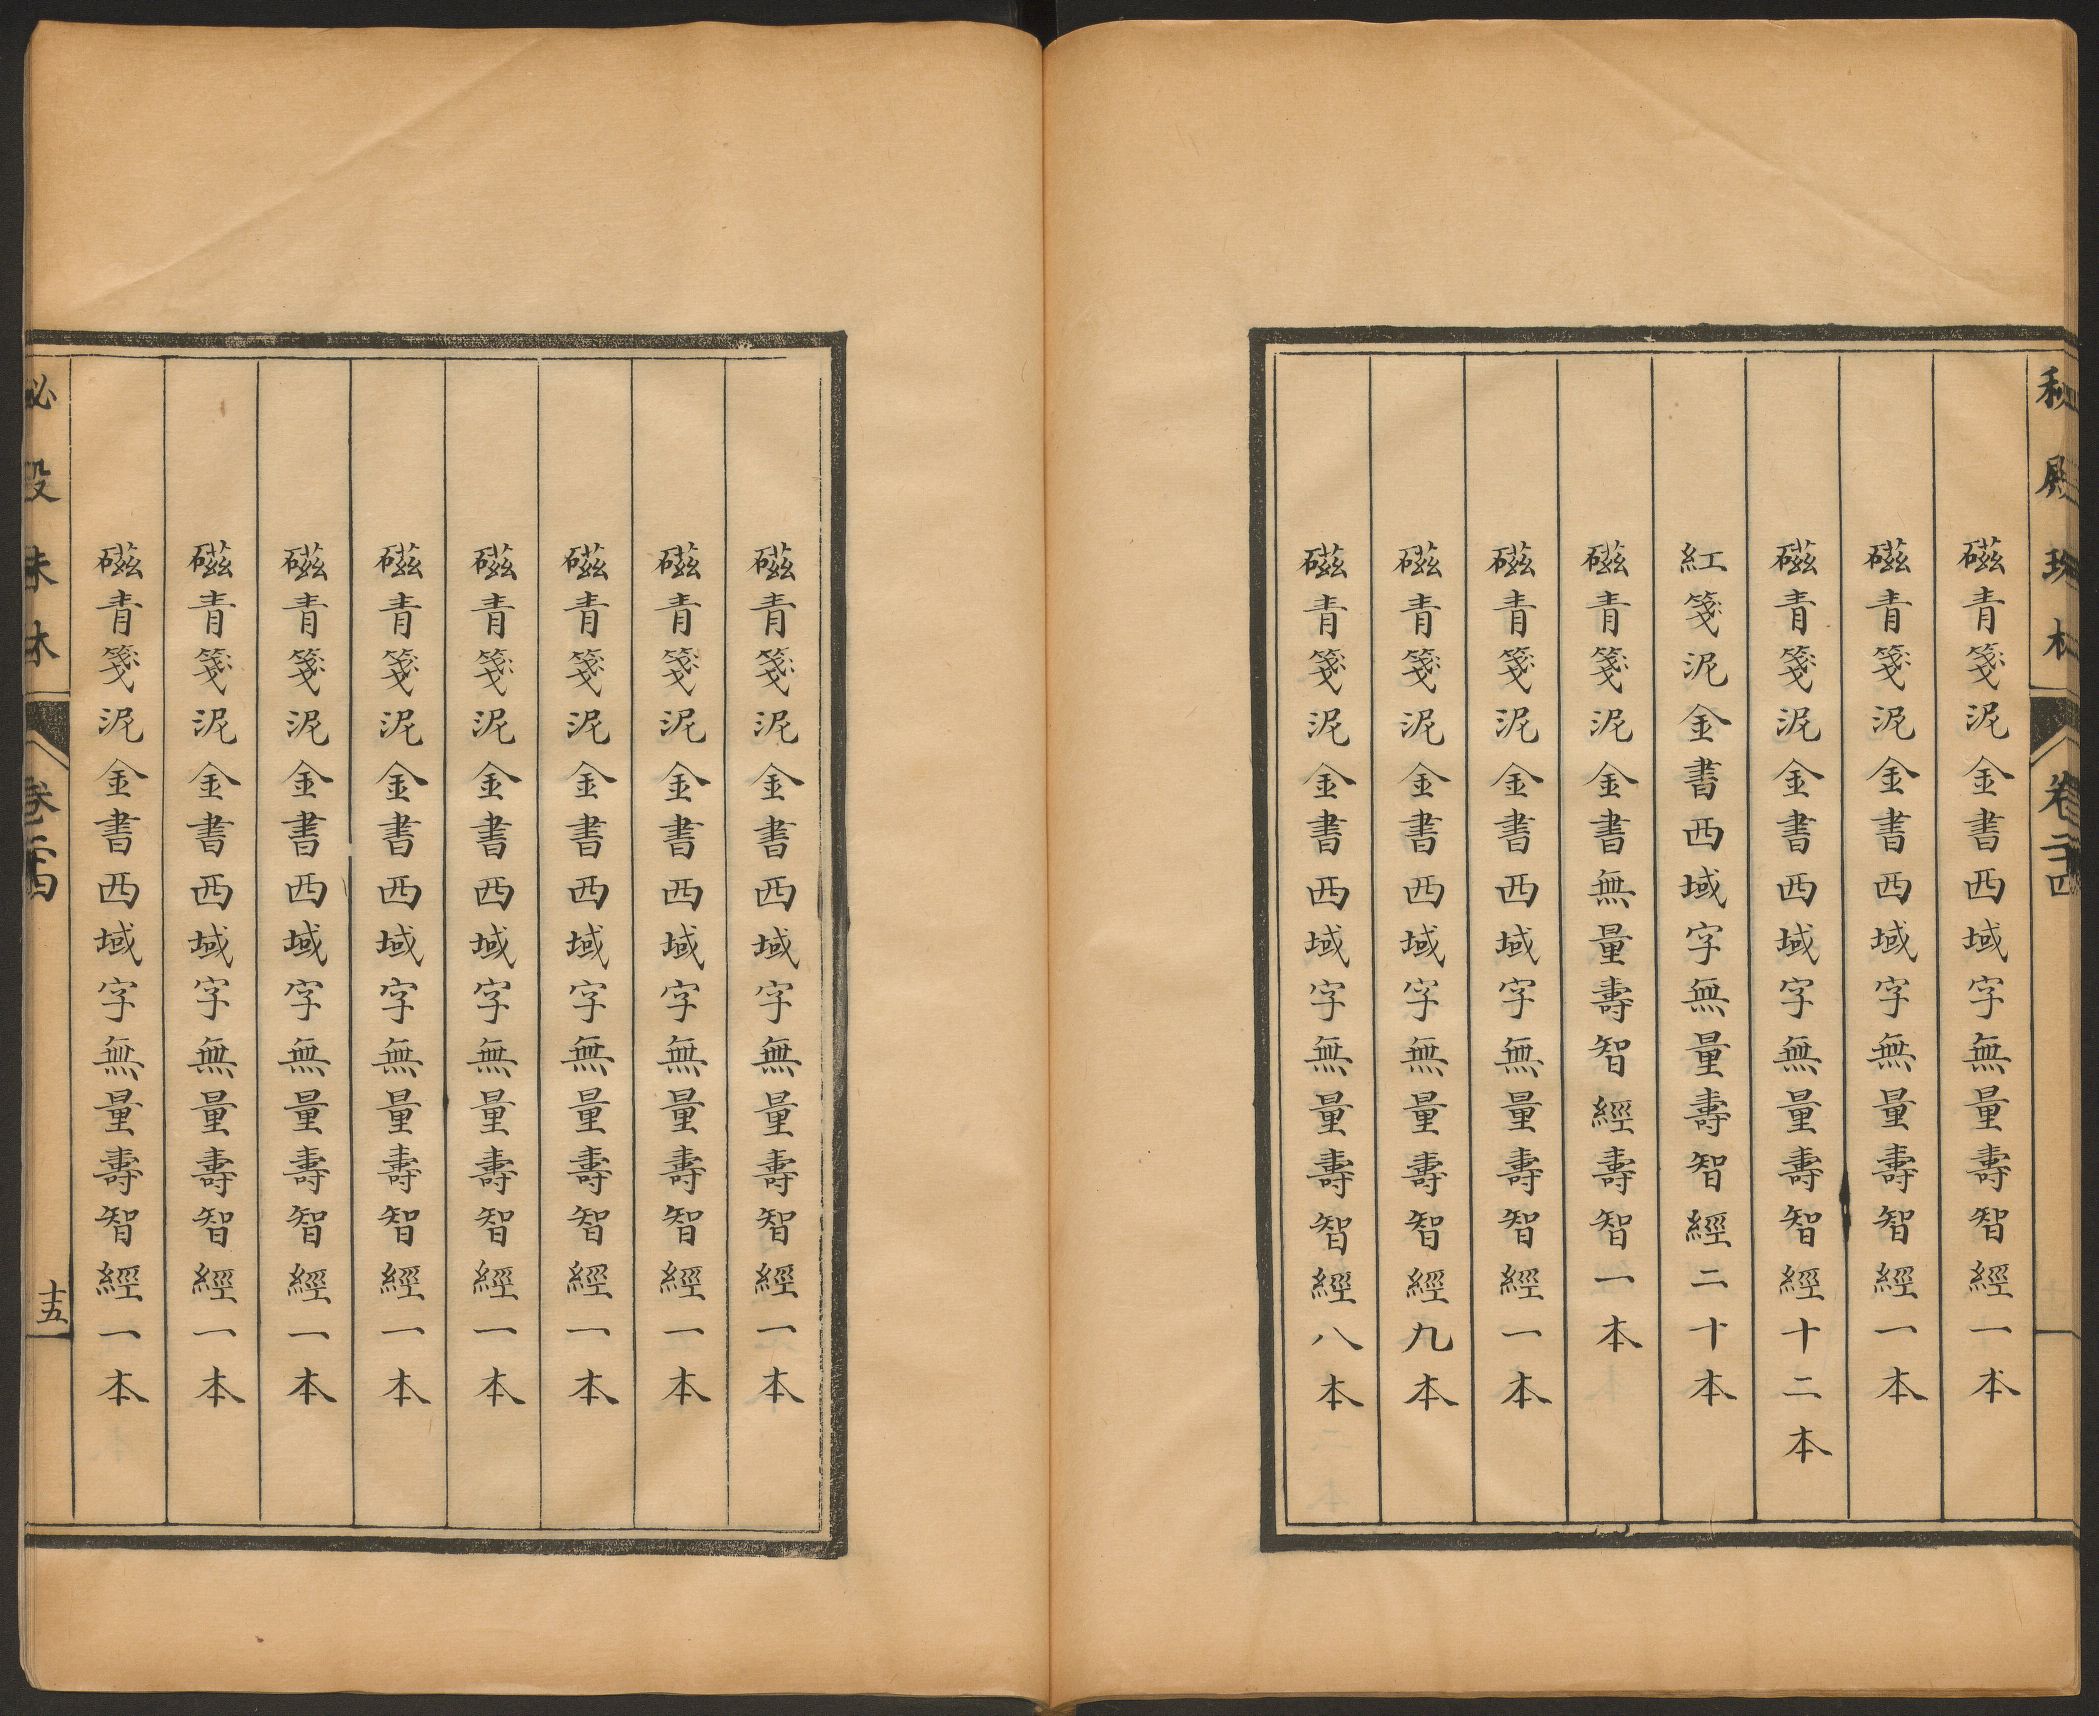 秘殿珠林 卷二十四
磁青箋泥金書西域字無量壽智經一本
磁青箋泥金書西域字無量壽智經一本
磁青箋泥金書西域字無量壽智經十二本
紅箋泥金書西域字無量壽智經二十本
磁青箋泥金書無量壽智經壽智一本
磁青箋泥金書西域字無量壽智經一本
磁青箋泥金書西域字無量壽智經九本
磁青箋泥金書西域字無量壽智經八本
磁青箋泥金書西域字無量壽智經一本
磁青箋泥金書西域字無量壽智經一本
磁青箋泥金書西域字無量壽智經一本
磁青箋泥金書西域字無量壽智經一本
磁青箋泥金書西域字無量壽智經一本
磁青箋泥金書西域字無量壽智經一本
磁青箋泥金書西域字無量壽智經一本
磁青箋泥金書西域字無量壽智經一本
秘殿珠林 卷二十四 十五